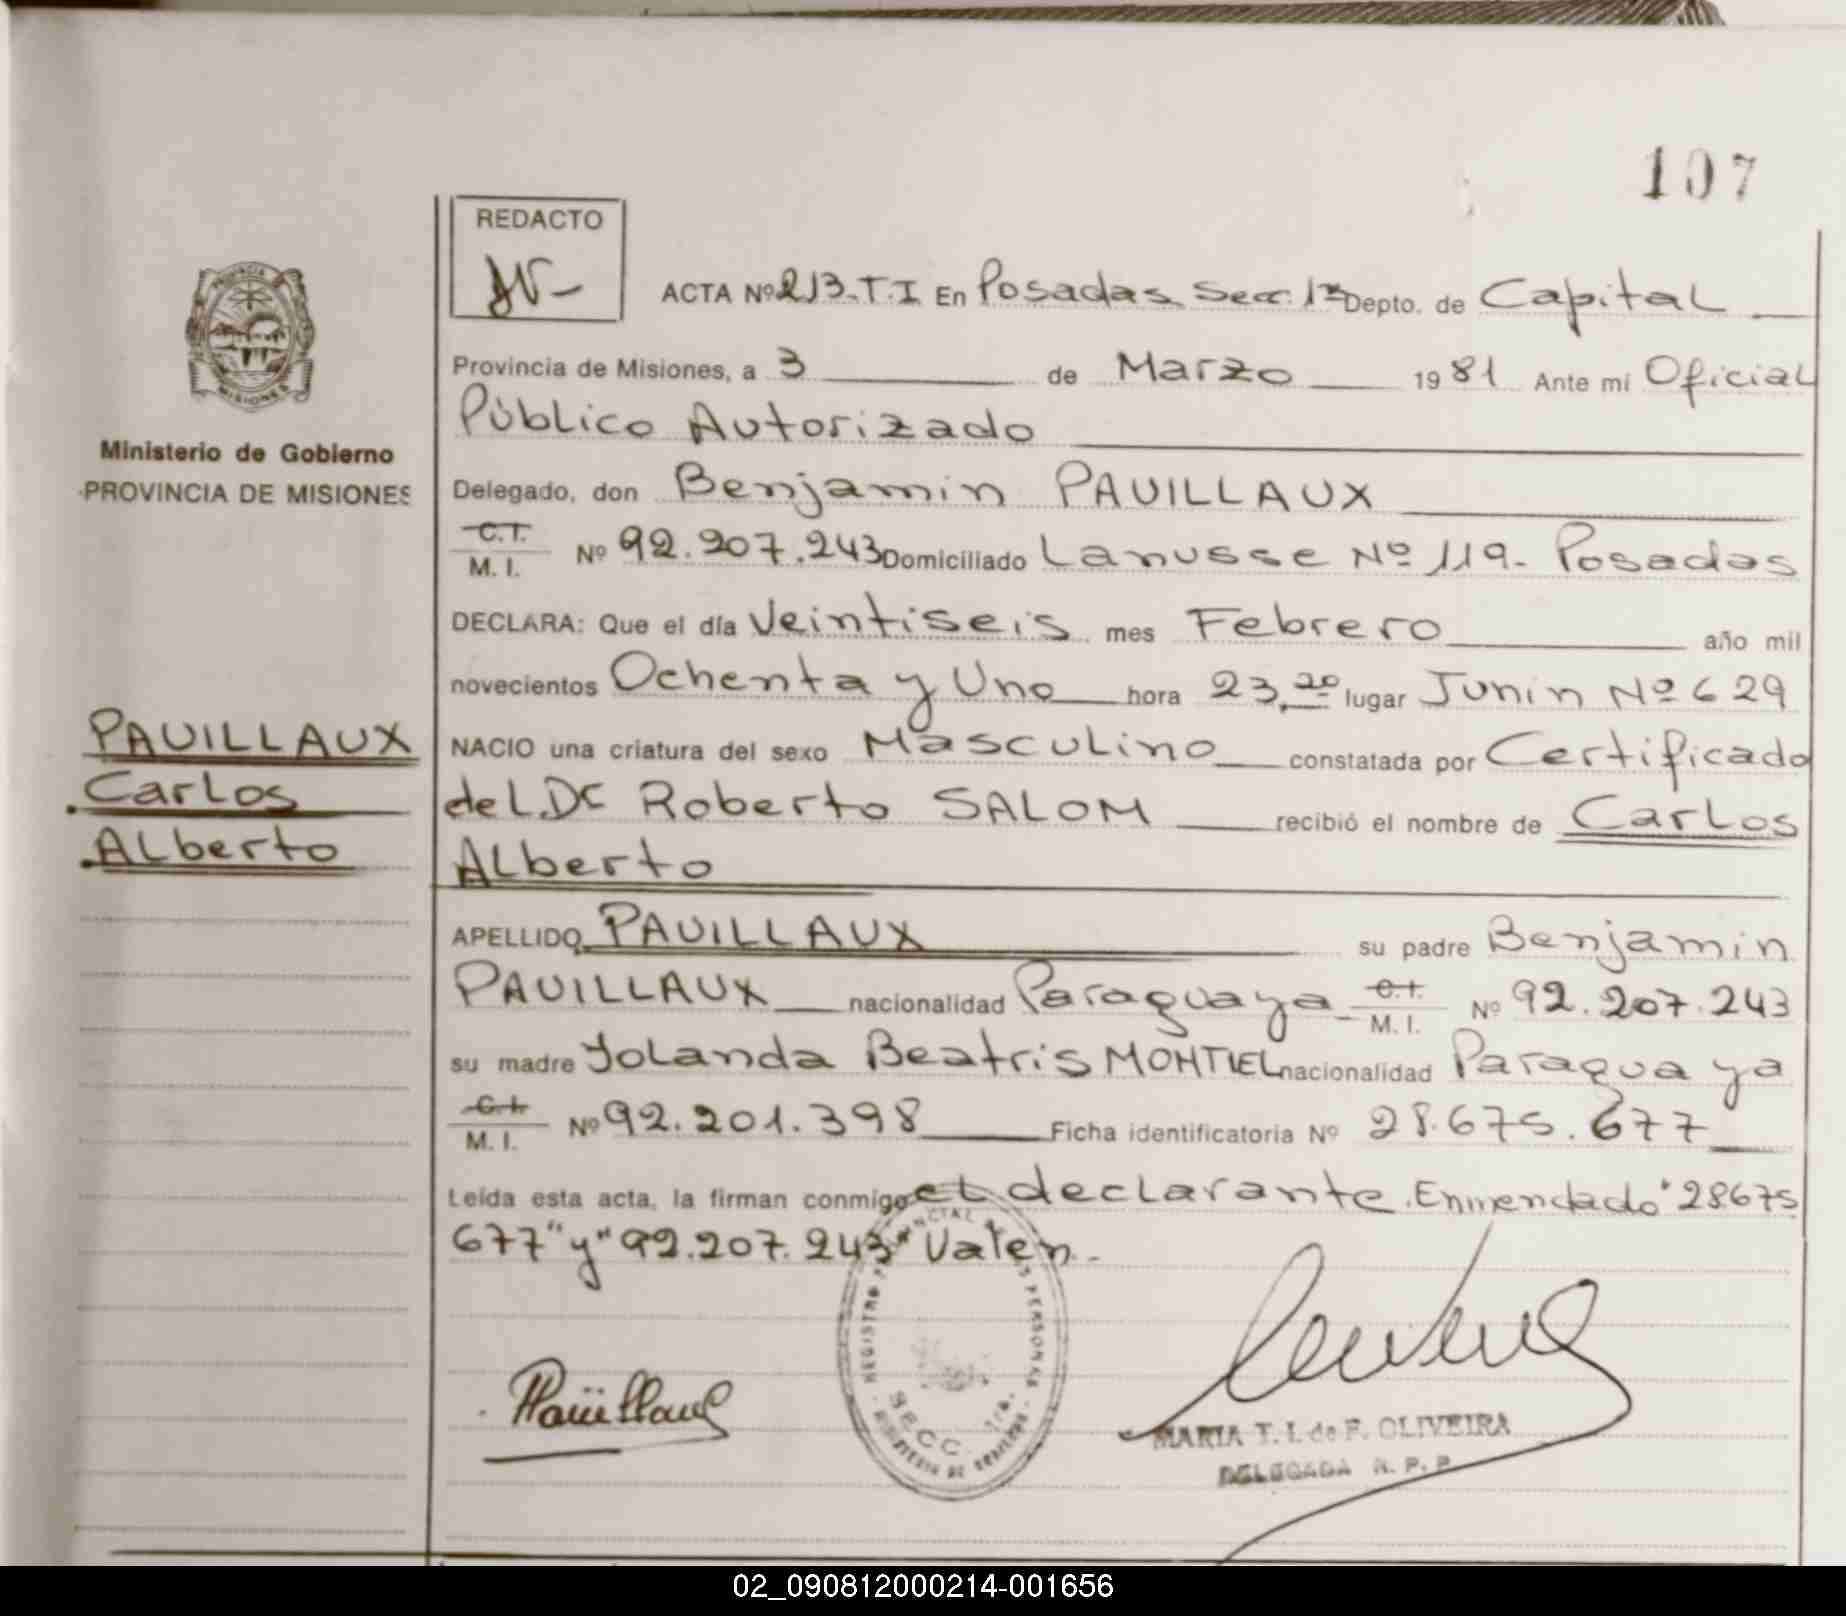 107
REDACTO
ACTA Nº 213-T.I En Posadas Secc. 1ª Depto. de Capital
Provincia de Misiones, a 3 de Marzo 1981 Ante mi Oficial
Público Autorizado
Delegado, don Benjamin PAUILLAUX
C.I. M. I. Nº 92.207.243 Domiciliado Lanusse Nº 119- Posadas
DECLARA: Que el día Veintiseis mes Febrero año mil
novecientos Ochenta y Uno hora 23,20 lugar Junin Nº 629
NACIO una criatura del sexo Masculino constatada por Certificado
del Dr Roberto SALOM recibió el nombre de Carlos
Alberto
APELLIDO PAUILLAUX su padre Benjamin
PAUILLAUX nacionalidad Paraguaya C.I. M. I. Nº 92.207.243
su madre Yolanda Beatris MONTIEL nacionalidad Paraguaya
C.I. M. I. Nº 92.201.398 Ficha identificatoria Nº 28.675.677
Leída esta acta, la firman conmigo el declarante. Enmendado "28675
677" y "92.207.243" Valen.-
MISIONES
Ministerio de Gobierno
PROVINCIA DE MISIONES
PAUILLAUX
Carlos
Alberto
SECC. 1ra.
MARIA T. I. de F. OLIVEIRA
DELEGADA R. P. P.
02_090812000214-001656